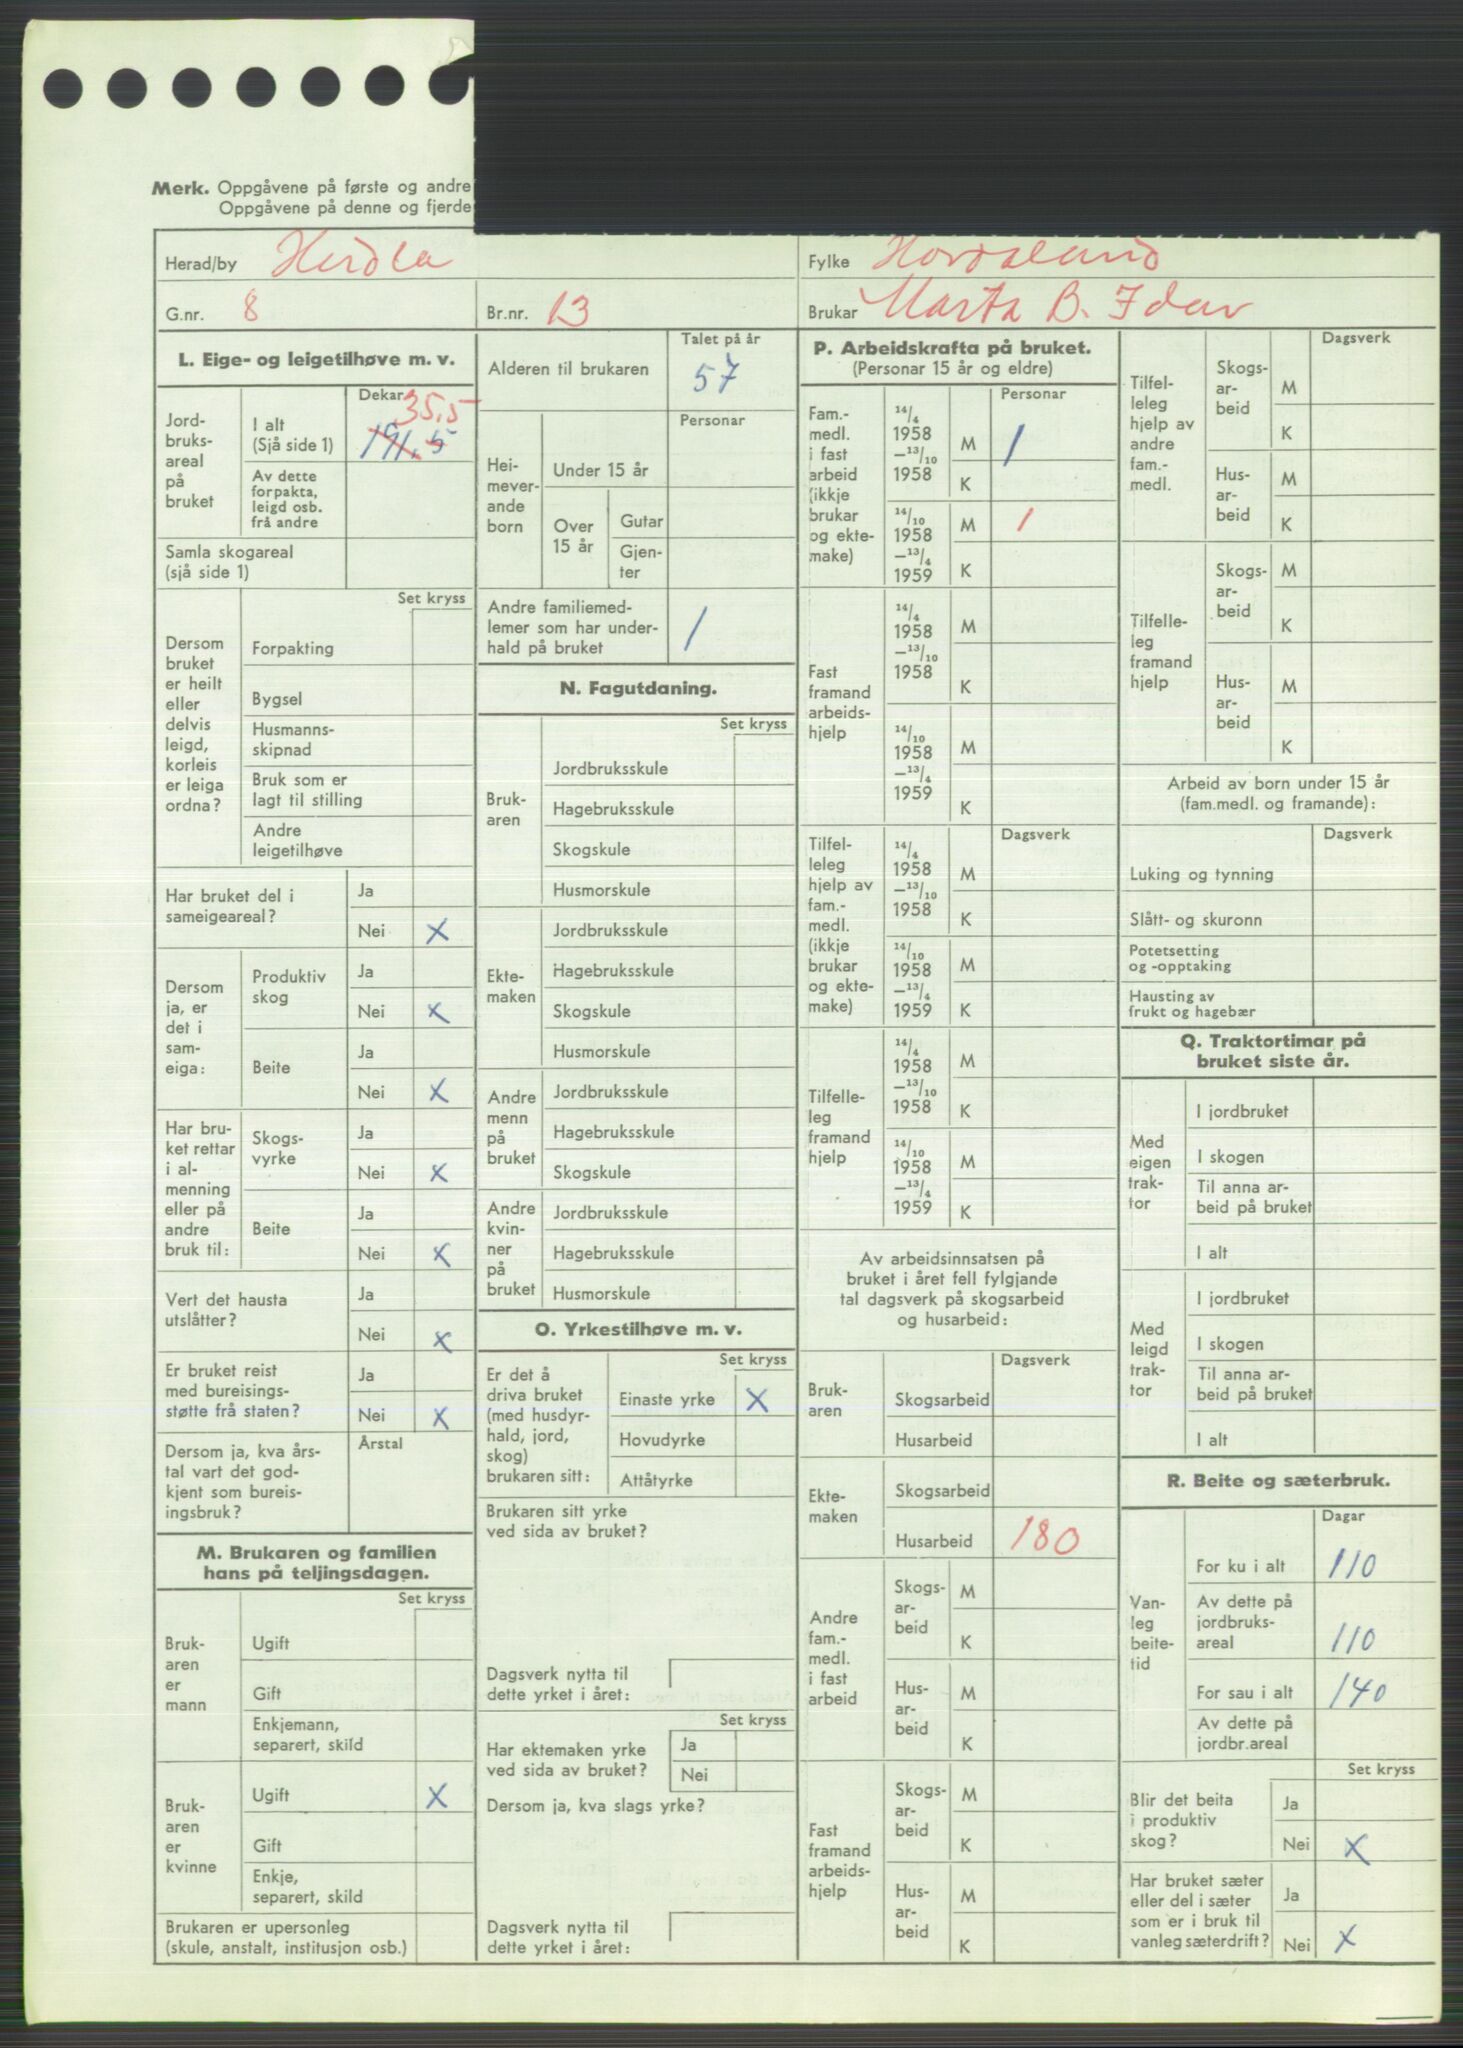 Merk. Oppgåvene på første og andre
Oppgåvene på denne og fjerde
Herad/by Herdla
Fylke Hordaland
G.nr. 8
Br.nr. 13
Brukar Marta B. Idav
L. Eige- og leigetilhøve m. v.
Jord-
bruks-
areal
på
bruket
Dekar
I alt
(Sjå side 1)
35,5
191,5
Av dette
forpakta,
leigd osb.
frå andre
Samla skogareal
(sjå side 1)
Set kryss
Dersom
bruket
er heilt
eller
delvis
leigd,
korleis
er leiga
ordna?
Forpakting
Bygsel
Husmanns-
skipnad
Bruk som er
lagt til stilling
Andre
leigetilhøve
Har bruket del i
sameigeareal?
Ja
Nei X
Dersom
ja, er
det i
sam-
eiga:
Produktiv
skog
Ja
Nei X
Beite
Ja
Nei X
Har bru-
ket rettar
i al-
menning
eller på
andre
bruk til:
Skogs-
vyrke
Ja
Nei X
Beite
Ja
Nei X
Vert det hausta
utslåtter?
Ja
Nei X
Er bruket reist
med bureisings-
støtte frå staten?
Ja
Nei X
Dersom ja, kva års-
tal vart det god-
kjent som bureis-
ingsbruk?
Årstal
M. Brukaren og familien
hans på teljingsdagen.
Set kryss
Bruk-
aren
er
mann
Ugift
Gift
Enkjemann,
separert, skild
Bruk-
aren
er
kvinne
Ugift X
Gift
Enkje,
separert, skild
Brukaren er upersonleg
(skule, anstalt, institusjon osb.)
Talet på år
Alderen til brukaren 57
Personar
Hei-
mever-
ande
born
Under 15 år
Over
15 år
Gutar
Gjen-
ter
Andre familiemed-
lemer som har under-
hald på bruket
1
N. Fagutdaning.
Set kryss
Bruk-
aren
Jordbruksskule
Hagebruksskule
Skogskule
Husmorskule
Ekte-
maken
Jordbruksskule
Hagebruksskule
Skogskule
Husmorskule
Andre
menn
på
bruket
Jordbruksskule
Hagebruksskule
Skogskule
Andre
kvin-
ner
på
bruket
Jordbruksskule
Hagebruksskule
Husmorskule
O. Yrkestilhøve m. v.
Set kryss
Er det å
driva bruket
(med husdyr-
hald, jord,
skog)
brukaren sitt:
Einaste yrke X
Hovudyrke
Attåtyrke
Brukaren sitt yrke
ved sida av bruket?
Dagsverk nytta til
dette yrket i året:
Set kryss
Har ektemaken yrke
ved sida av bruket?
Ja
Nei
Dersom ja, kva slags yrke?
Dagsverk nytta til
dette yrket i året:
P. Arbeidskrafta på bruket.
(Personar 15 år og eldre)
Personar
Fam.-
medl.
i fast
arbeid
(ikkje
brukar
og ekte-
make)
14/4
1958
—13/10
1958
M 1
K
14/10
1958
—13/4
1959
M 1
K
Fast
framand
arbeids-
hjelp
14/4
1958
—13/10
1958
M
K
14/10
1958
—13/4
1959
M
K
Dagsverk
Tilfel-
leleg
hjelp av
fam.-
medl.
(ikkje
brukar
og ekte-
make)
14/4
1958
—13/10
1958
M
K
14/10
1958
—13/4
1959
M
K
Tilfelle-
leg
framand
hjelp
14/4
1958
—13/10
1958
M
K
14/10
1958
—13/4
1959
M
K
Av arbeidsinnsatsen på
bruket i året fell fylgjande
tal dagsverk på skogsarbeid
og husarbeid:
Dagsverk
Bruk-
aren
Skogsarbeid
Husarbeid
Ekte-
maken
Skogsarbeid
Husarbeid 180
Andre
fam.-
medl.
i fast
arbeid
Skogs-
ar-
beid
M
K
Hus-
ar-
beid
M
K
Fast
framand
arbeids-
hjelp
Skogs-
ar-
beid
M
K
Hus-
ar-
beid
M
K
Dagsverk
Tilfel-
leleg
hjelp av
andre
fam.-
medl.
Skogs-
ar-
beid
M
K
Hus-
ar-
beid
M
K
Tilfelle-
leg
framand
hjelp
Skogs-
ar-
beid
M
K
Hus-
ar-
beid
M
K
Arbeid av born under 15 år
(fam.medl. og framande):
Dagsverk
Luking og tynning
Slått- og skuronn
Potetsetting
og -opptaking
Hausting av
frukt og hagebær
Q. Traktortimar på
bruket siste år.
Med
eigen
trak-
tor
I jordbruket
I skogen
Til anna ar-
beid på bruket
I alt
Med
leigd
trak-
tor
I jordbruket
I skogen
Til anna ar-
beid på bruket
I alt
R. Beite og sæterbruk.
Dagar
Van-
leg
beite-
tid
For ku i alt 110
Av dette på
jordbruks-
areal 110
For sau i alt 140
Av dette på
jordbr.areal
Set kryss
Blir det beita
i produktiv
skog?
Ja
Nei X
Har bruket sæter
eller del i sæter
som er i bruk til
vanleg sæterdrift?
Ja
Nei X